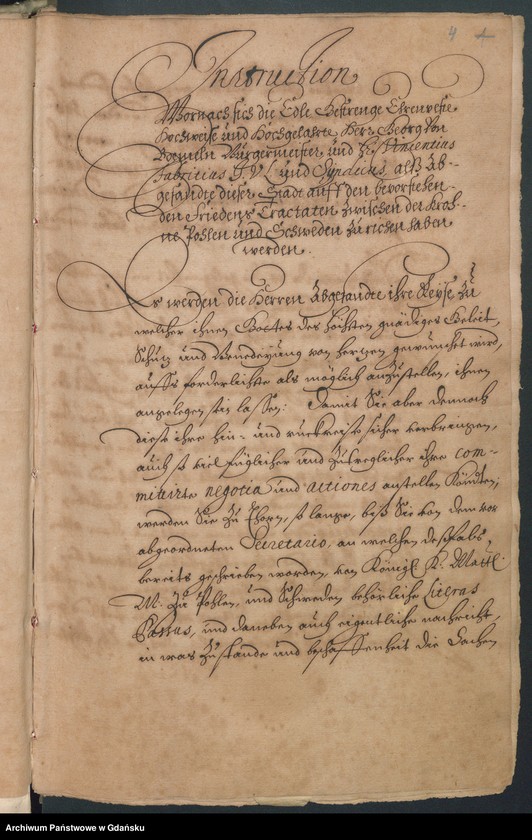 4
Instruction
Wornach sich die Edle Gestrenge Ehrenveste
Hochweise und Hochgelahrte Herr Georg von
Boemeln Bürgermeister, und H. Vincentius
Fabritius J. V. L. und Syndicus, alß Ab-
gesandte dieser Stadt auff den bevorstehen-
den Friedens Tractaten zwischen der Kroh-
ne Pohlen und Schweden zu richen haben
werden.
Es werden die Herren Abgesandte ihre Reyse zu
welcher ihnen Gottes des höchsten gnädiges Geleit,
Schutz und Benedeyung von hertzen gewünschet wird,
auffs forderlichste als möglich anzustellen, ihnen
angelegen sein lassen: Damit Sie aber dennoch
diese ihre hin- und rückreise sicher verbringen,
auch so viel füglicher und zutreglicher ihre com-
mitirte negotia und actiones anstellen könten;
werden Sie zu Thorn, so lange, biß Sie von dem vor
abgeordneten Secretario, an welchen deßfals
bereits geschrieben worden, von Königl. K. Maytt.
M. zu Pohlen, und Schweden behörliche Literas
Passus, und daneben auch eigentliche nachricht,
in was zustande und beschaffenheit die Sachen
Archiwum Państwowe w Gdańsku